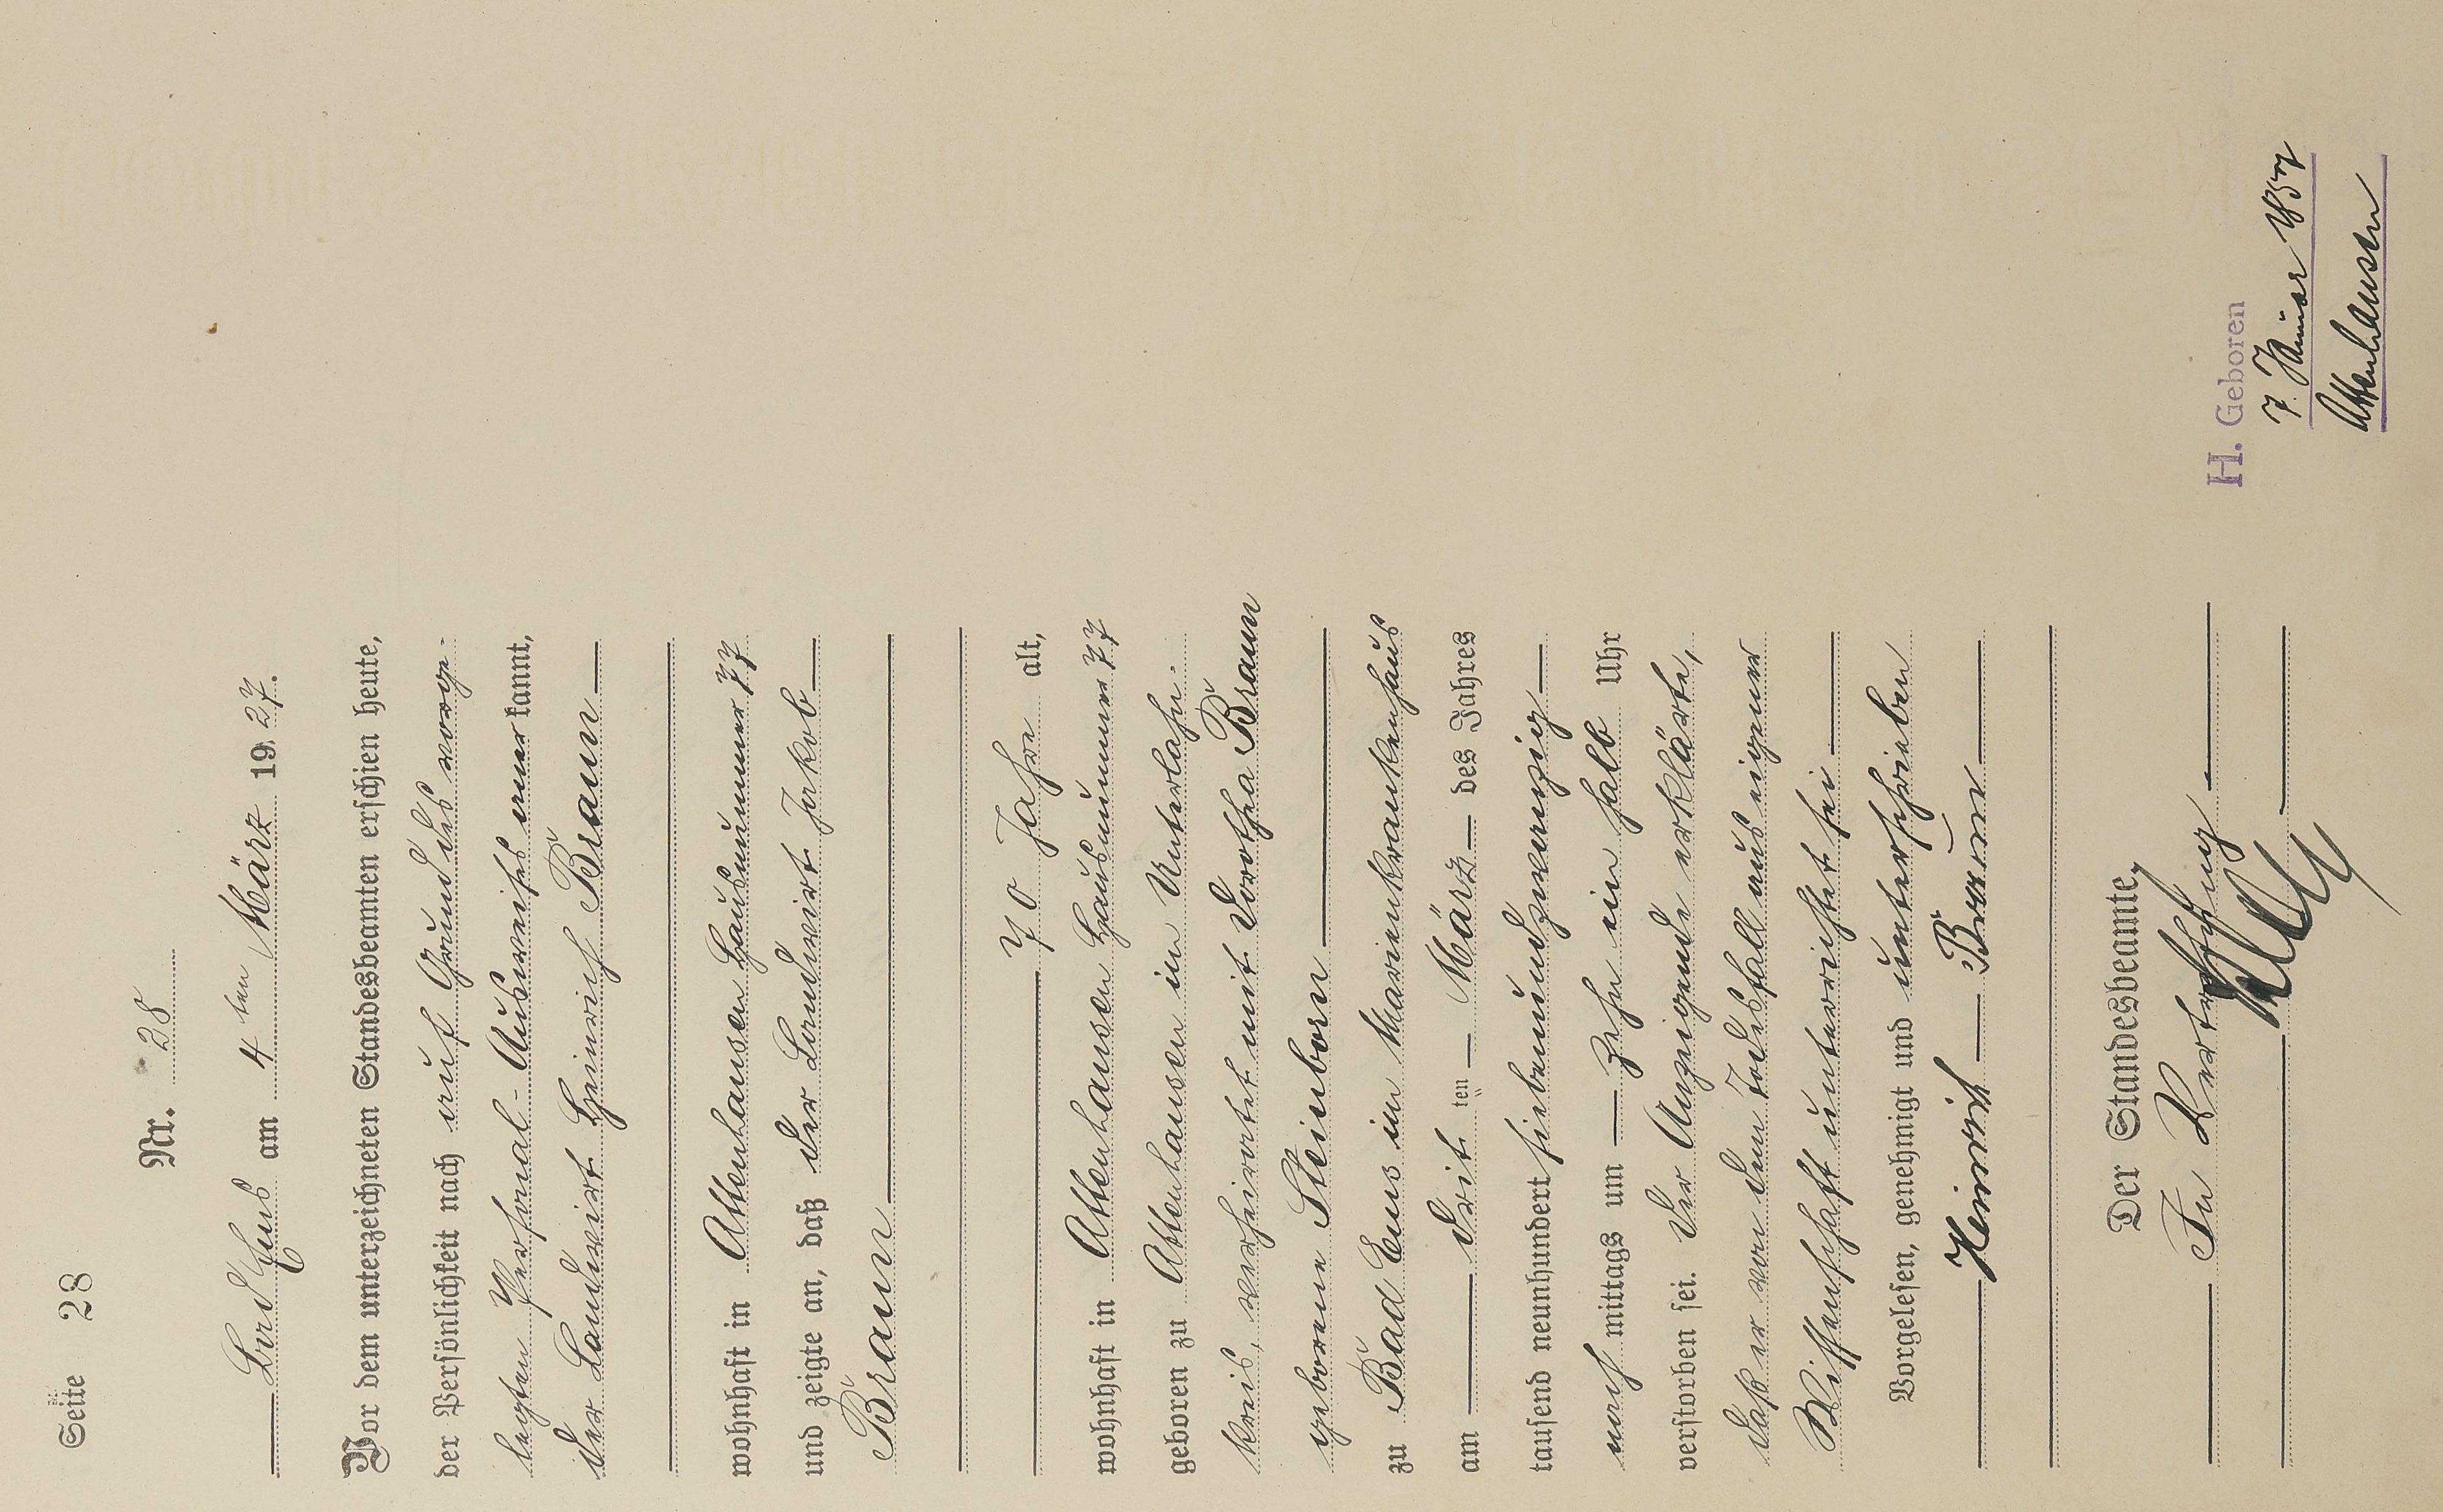 Seite 28
Nr. 28
Bad Ems am 4ten März 1927.
Vor dem unterzeichneten Standesbeamten erschien heute,
der Persönlichkeit nach auf Grund des vorge-
legten Personal-Ausweises anerkannt,
der Landwirt Heinrich Braun
wohnhaft in Attenhausen Hausnummer 77
und zeigte an, daß der Landwirt Jakob
Braun
70 Jahre alt,
wohnhaft in Attenhausen Hausnummer 77
geboren zu Attenhausen im Unterlahn-
kreis, verheiratet mit Dorothea Braun
geborene Steinborn
zu Bad Ems im Marienkrankenhaus
am drit ten März des Jahres
tausend neunhundert siebenundzwanzig
nach mittags um zehn ein halb Uhr
verstorben sei. Der Anzeigende erklärte,
daß er von dem Todesfall aus eigener
Wissenschaft unterrichtet sei
Vorgelesen, genehmigt und unterschrieben
Heinrich Braun
Der Standesbeamte,
In Vertretung
H. Geboren
7. Januar 1857
Attenhausen